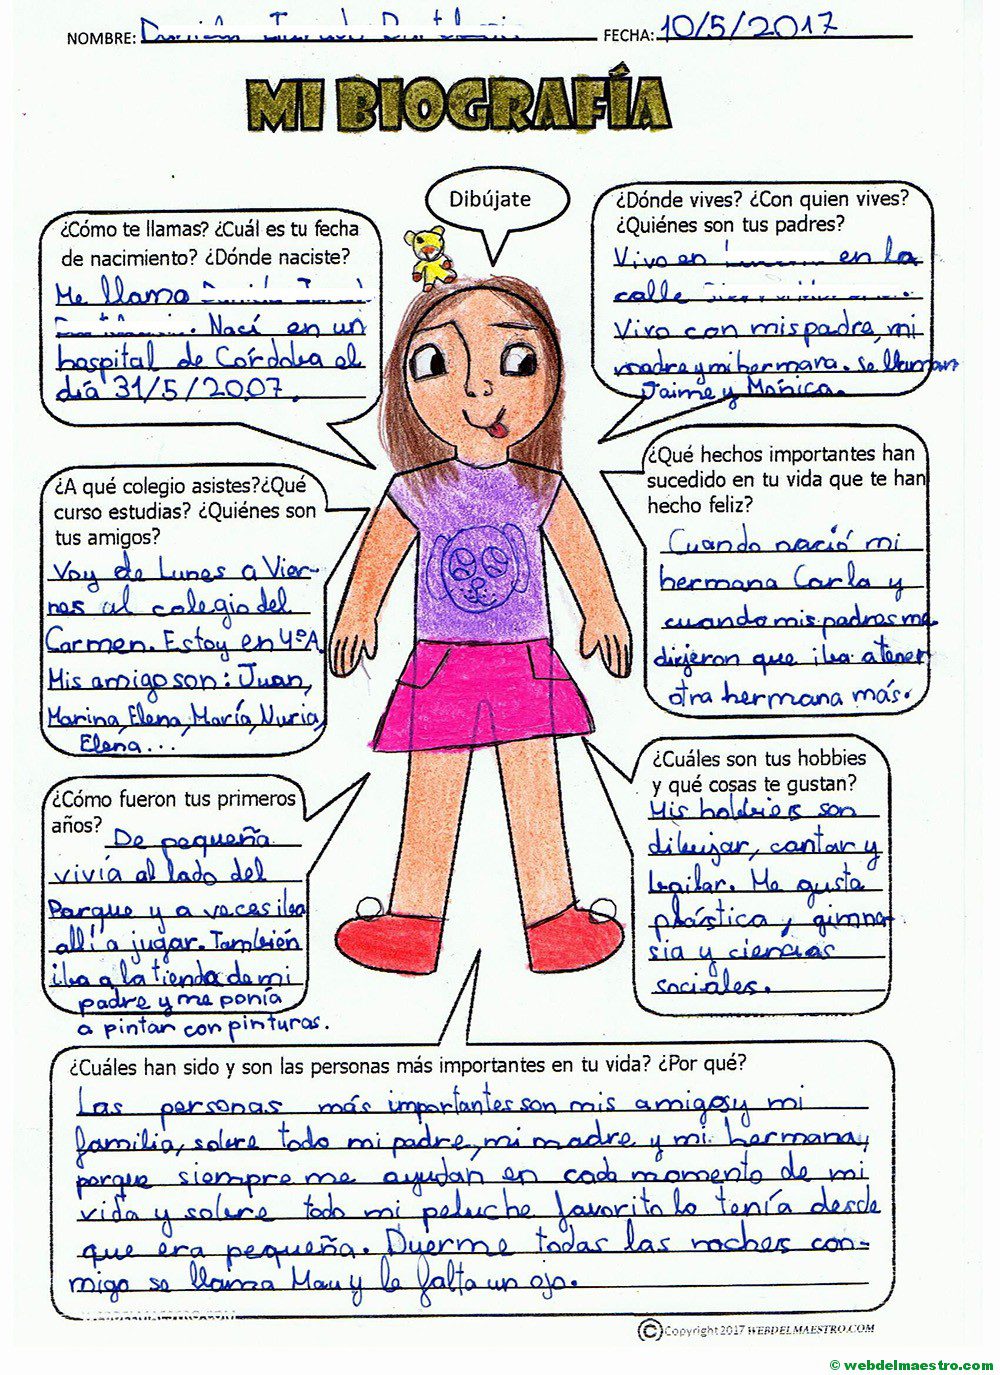 NOMBRE: FECHA: 10/5/2017
MI BIOGRAFÍA
Dibújate
¿Cómo te llamas? ¿Cuál es tu fecha
de nacimiento? ¿Dónde naciste?
Me llamo
. Nací en un
hospital de Córdoba el
día 31/5/2007.
¿Dónde vives? ¿Con quien vives?
¿Quiénes son tus padres?
Vivo en en la
calle .
Vivo con mis padre, mi
madre y mi hermana. Se llaman
Jaime y Mónica.
¿A qué colegio asistes?¿Qué
curso estudias? ¿Quiénes son
tus amigos?
Voy de Lunes a Vier-
nes al colegio del
Carmen. Estoy en 4ºA.
Mis amigo son: Juan,
Marina, Elena, María, Nuria,
Elena...
¿Qué hechos importantes han
sucedido en tu vida que te han
hecho feliz?
Cuando nació mi
hermana Carla y
cuando mis padres me
dirjeron que iba a tener
otra hermana más.
¿Cómo fueron tus primeros
años?
De pequeña
vivía al lado del
Parque y a veces iba
allí a jugar. También
iba a la tienda de mi
padre y me ponía
a pintar con pinturas.
¿Cuáles son tus hobbies
y qué cosas te gustan?
Mis hobbies son
dibujar, cantar y
bailar. Me gusta
plástica y gimna-
sia y ciencias
sociales.
¿Cuáles han sido y son las personas más importantes en tu vida? ¿Por qué?
Las personas más importantes son mis amigos y mi
familia, sobre todo mi padre, mi madre y mi hermana,
porque siempre me ayudan en cada momento de mi
vida y sobre todo mi peluche favorito lo tenía desde
que era pequeña. Duerme todas las noches con-
migo se llama Mau y le falta un ojo.
WEBDELMAESTRO.COM
©Copyright 2017 WEBDELMAESTRO.COM
© webdelmaestro.com